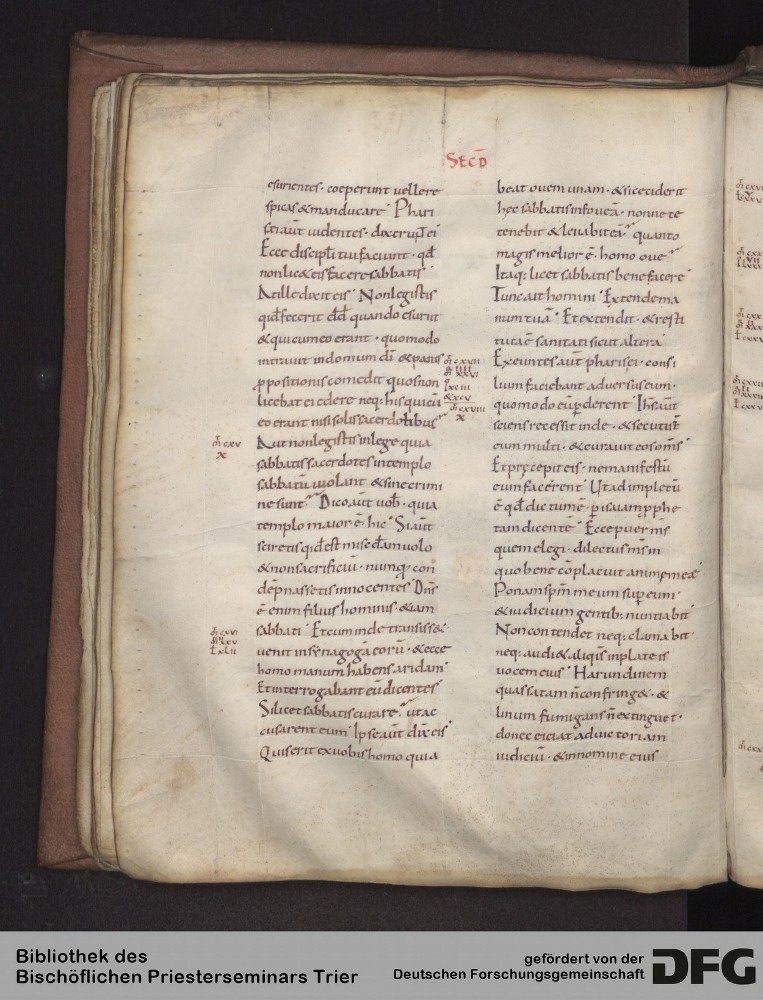 SECD̄
esurientes · coeperunt uellere
spicas & manducare Phari
sei aūt uidentes · dixerunt ei
Ecce discipl̄i tui faciunt · qđ
non lic& eis facere sabbatis
At ille dixit eis Non legistis
quid fecerit dđ quando esuriit
& qui cum eo erant · quomodo
intrauit in domum dī & panis
ꝓpositionis comedit quos non
licebat ei edere neq; his qui cū
eo erant nisi solis sacerdotibus
Aut non legistis in lege quia
sabbatis sacerdotes in templo
sabbatū uiolant & sine crimi
ne sunt Dico aūt uob̄ · quia
templo maior ē hic Si aūt
sciretis quid est misc̄đam uolo
& non sacrificiū · numq̄ con
dēpnassetis innocentes Dn̄s
ē enim filius hominis & iam
sabbati Et cum inde transiss&
uenit in synagogā eorū · & ecce
homo manum habens aridam
Et interrogabant eū dicentes
Si licet sabbatis curare ut ac
cusarent eum Ipse aūt dix̄ eis
Quis erit ex uobis homo quia
beat ouem unam · & si ceciderit
hec sabbatis in foueā · nonne te
nebit & leuabit eā quanto
magis melior ē · homo oue
Itaq; licet sabbatis bene facere
Tunc ait homini Extende ma
num tuā Et extendit · & resti
tuta ē sanitati sicut altera
Exeuntes aūt pharisei · consi
lium faciebant aduersus eum ·
quomodo eū perderent Ih̄s aūt
sciens recessit inde · & secuti st̄
eum multi · & curauit eos om̄s
Et precepit eis · ne manifestū
eum facerent Ut adimpletū
ē qđ dictum ē · p isaiam ppphe
tam dicente Ecce puer m̄s
quem elegi · dilectus m̄s in
quo bene cōplacuit anime meę
Ponam sp̄m meum sup eum
& iudicium gentib; nuntiabit
Non contendet neq; clamabit ·
neq; audi& aliquis in plateis
uocem eius Harundinem
quassatam n̄ confring& · &
linum fumigans n̄ extinguet ·
donec eiciat ad uictoriam
iudiciū · & in nomine eius
Bibliothek des
Bischöflichen Priesterseminars Trier
gefördert von der
Deutschen Forschungsgemeinschaft
DFG